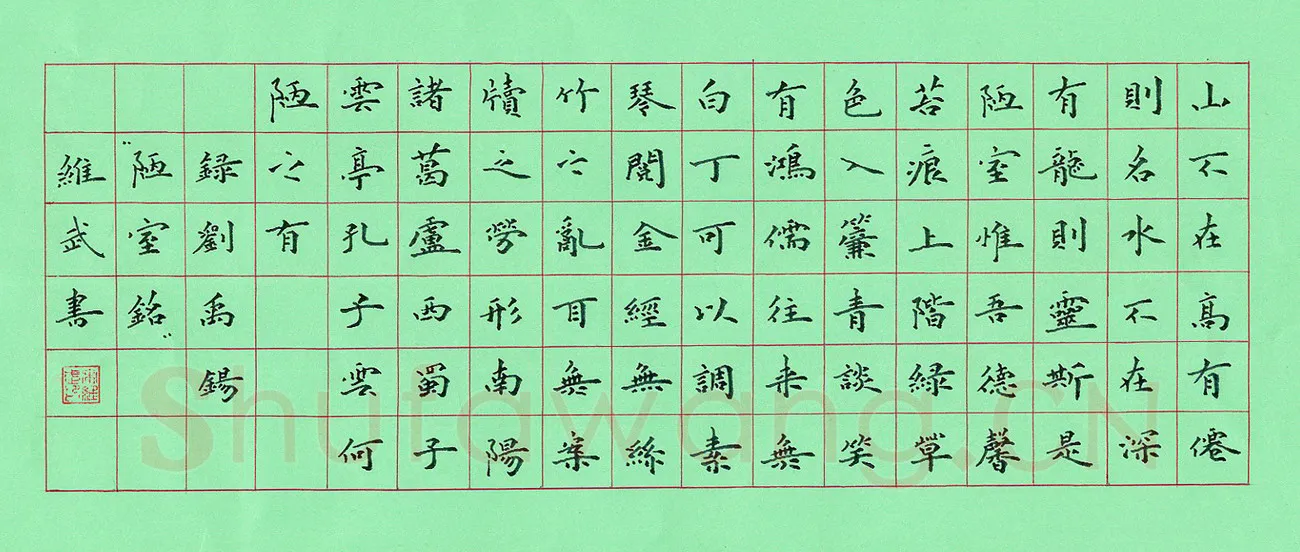 山不在高有僊
則名水不在深
有龍則靈斯是
陋室惟吾德馨
苔痕上階緑草
色入簾青談笑
有鴻儒往来無
白丁可以調素
琴閱金經無絲
竹之亂耳無案
牘之勞形南陽
諸葛盧西蜀子
雲亭孔子雲何
陋之有
録劉禹錫
"陋室銘"
維武書
Shufawang.CN